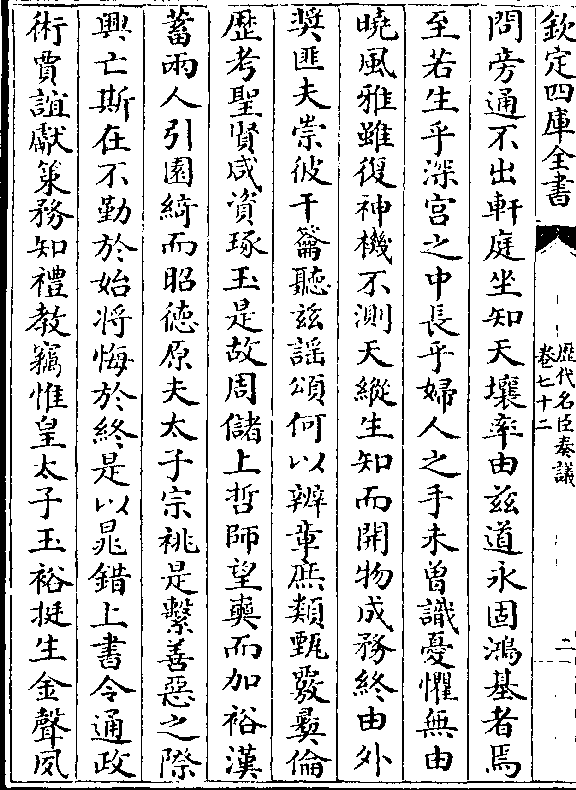 欽定四庫全書
歷代名臣奏議
卷七十二
二
問旁通不出軒庭坐知天壤率由兹道永固鴻基者焉
至若生乎深宫之中長乎婦人之手未曽識憂懼無由
曉風雅雖復神機不測天縱生知而開物成務終由外
奬匪夫崇彼干籥聽兹謡頌何以辨章庶類甄覈彛倫
歴考聖賢咸資琢玉是故周儲上哲師望奭而加裕漢
蓄兩人引園綺而昭徳原夫太子宗祧是繫善惡之際
興亡斯在不勤於始将悔於終是以鼂錯上書令通政
術賈誼獻策務知禮教竊惟皇太子玉裕挺生金聲夙